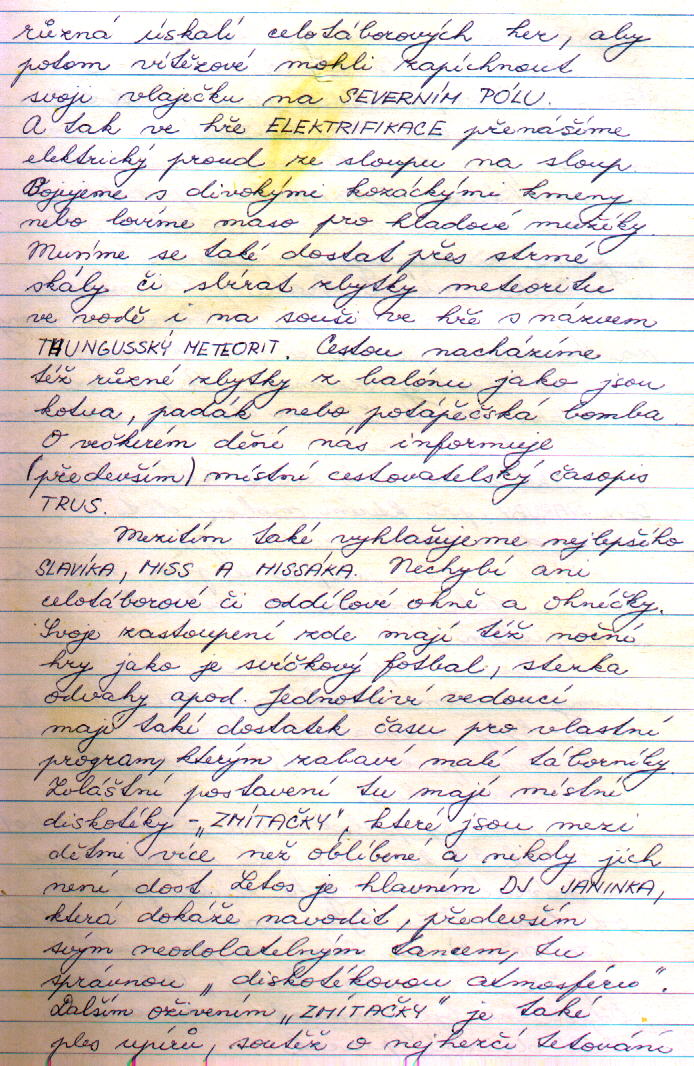 různá úskalí celotáborových her, aby
potom vítězové mohli zapíchnout
svoji vlaječku na SEVERNÍM PÓLU.
A tak ve hře ELEKTRIFIKACE přenášíme
elektrický proud ze sloupu na sloup.
Bojujeme s divokými kozáckými kmeny
nebo lovíme maso pro hladové mužíky.
Musíme se také dostat přes strmé
skály či sbírat zbytky meteoritu
ve vodě i na souši ve hře s názvem
TUNGUSSKÝ METEORIT. Cestou nacházíme
též různé zbytky z balónu jako jsou
kotva, padák nebo potápěčská bomba.
O veškerém dění nás informuje
(především) místní cestovatelský časopis
TRUS.
Mezitím také vyhlašujeme nejlepšího
SLAVÍKA, MISS A MISSÁKA. Nechybí ani
celotáborové či oddílové ohně a ohníčky.
Svoje zastoupení zde mají též noční
hry jako je svíčkový fotbal, stezka
odvahy apod. Jednotliví vedoucí
mají také dostatek času pro vlastní
program, kterým zabaví malé táborníky.
Zvláštní postavení tu mají místní
diskotéky - „ZMÍTAČKY", které jsou mezi
dětmi více než oblíbené a nikdy jich
není dost. Letos je hlavním DJ JANINKA,
která dokáže navodit, především
svým neodolatelným tancem, tu
správnou „diskotékovou atmosféru".
Dalším oživením „ZMÍTAČKY" je také
ples upírů, soutěž o nejhezčí tetování